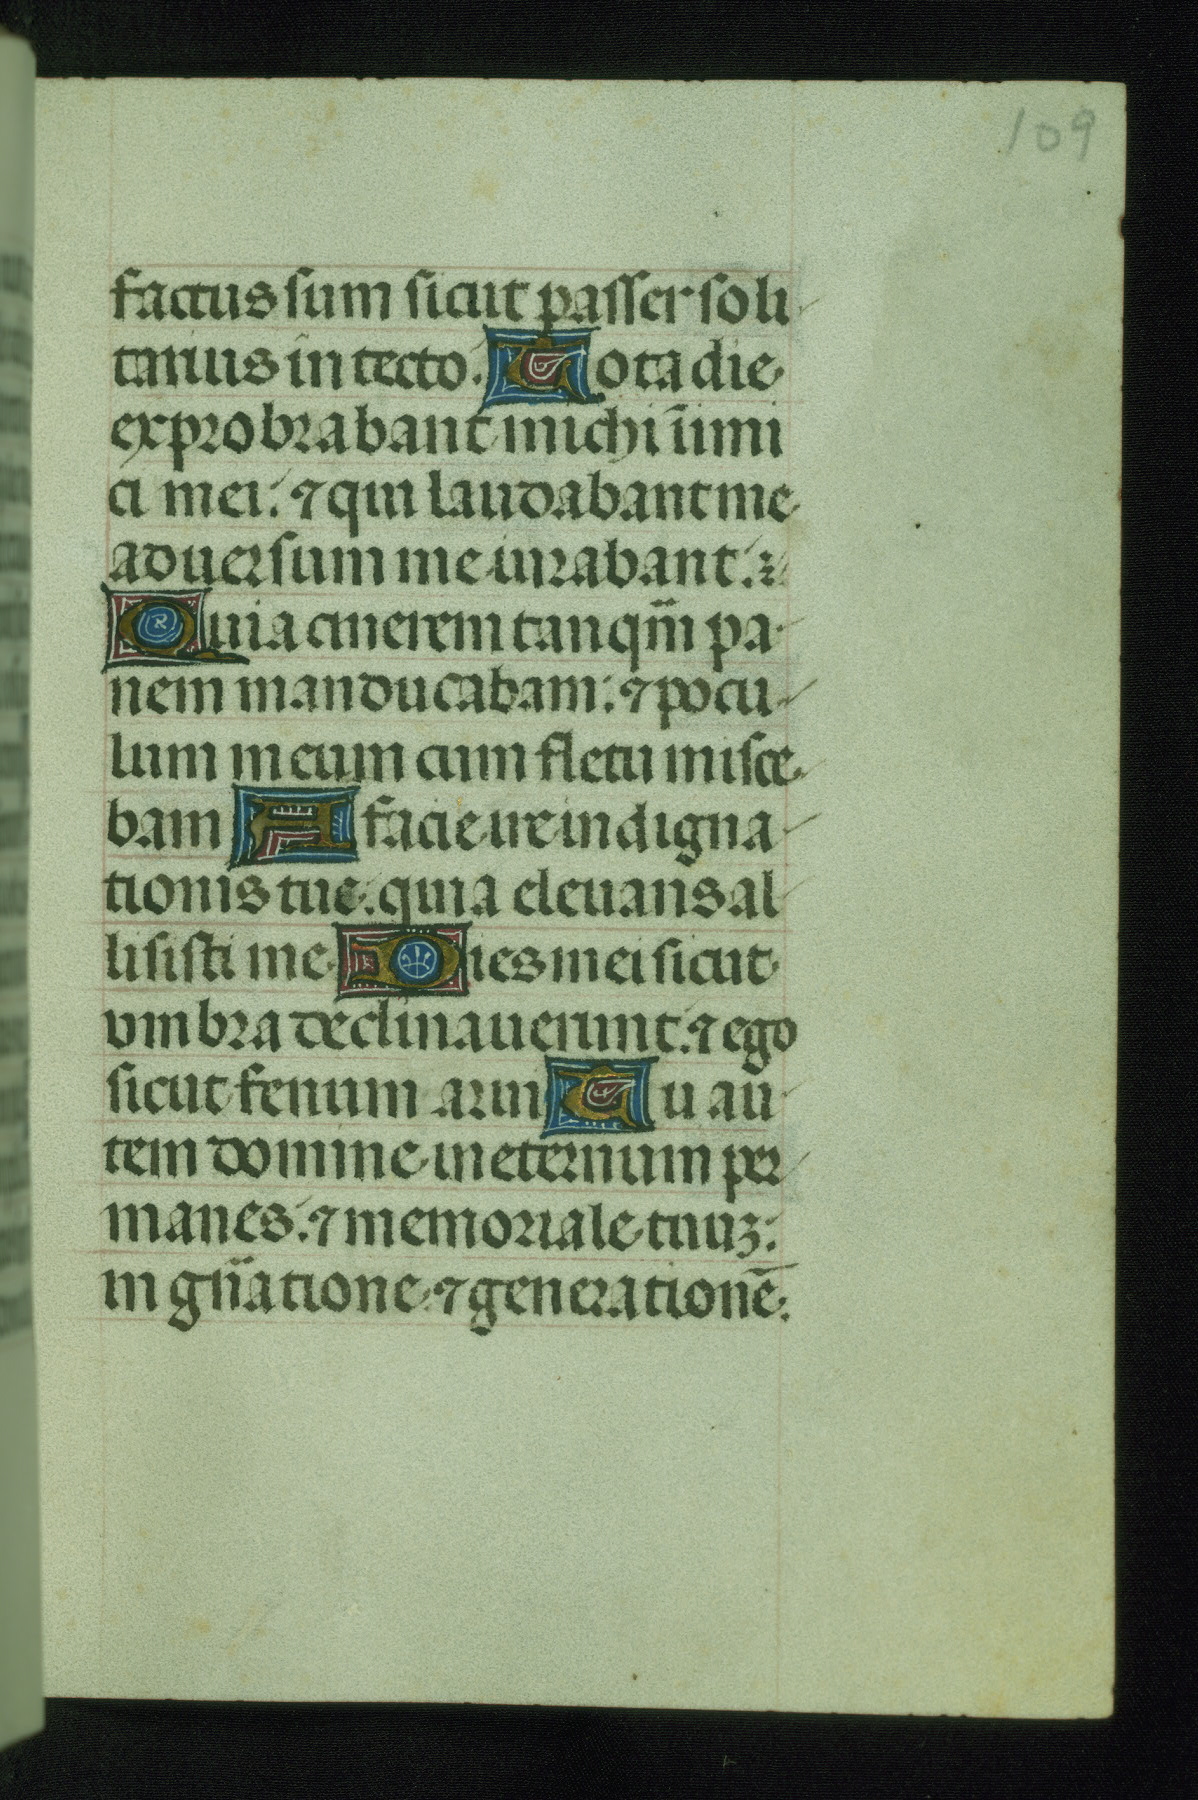 109
factus sum sicut passer soli
tarius in tecto. Tota die
exprobrabant michi īimi
ci mei: ⁊ qui laudabant me
aduersum me iurabant.
Quia cinerem tanqm̄ pa
nem manducabam: ⁊ pocu
lum meum cum fletu misce
bam A facie ire indigna
tionis tue. quia eleuans al
lisisti me Dies mei sicut
vmbra declinauerunt. ⁊ ego
sicut fenum arui Tu au
tem domine in eternum per
manes. ⁊ memoriale tuuꝫ:
in gn̄atione ⁊ generationē.